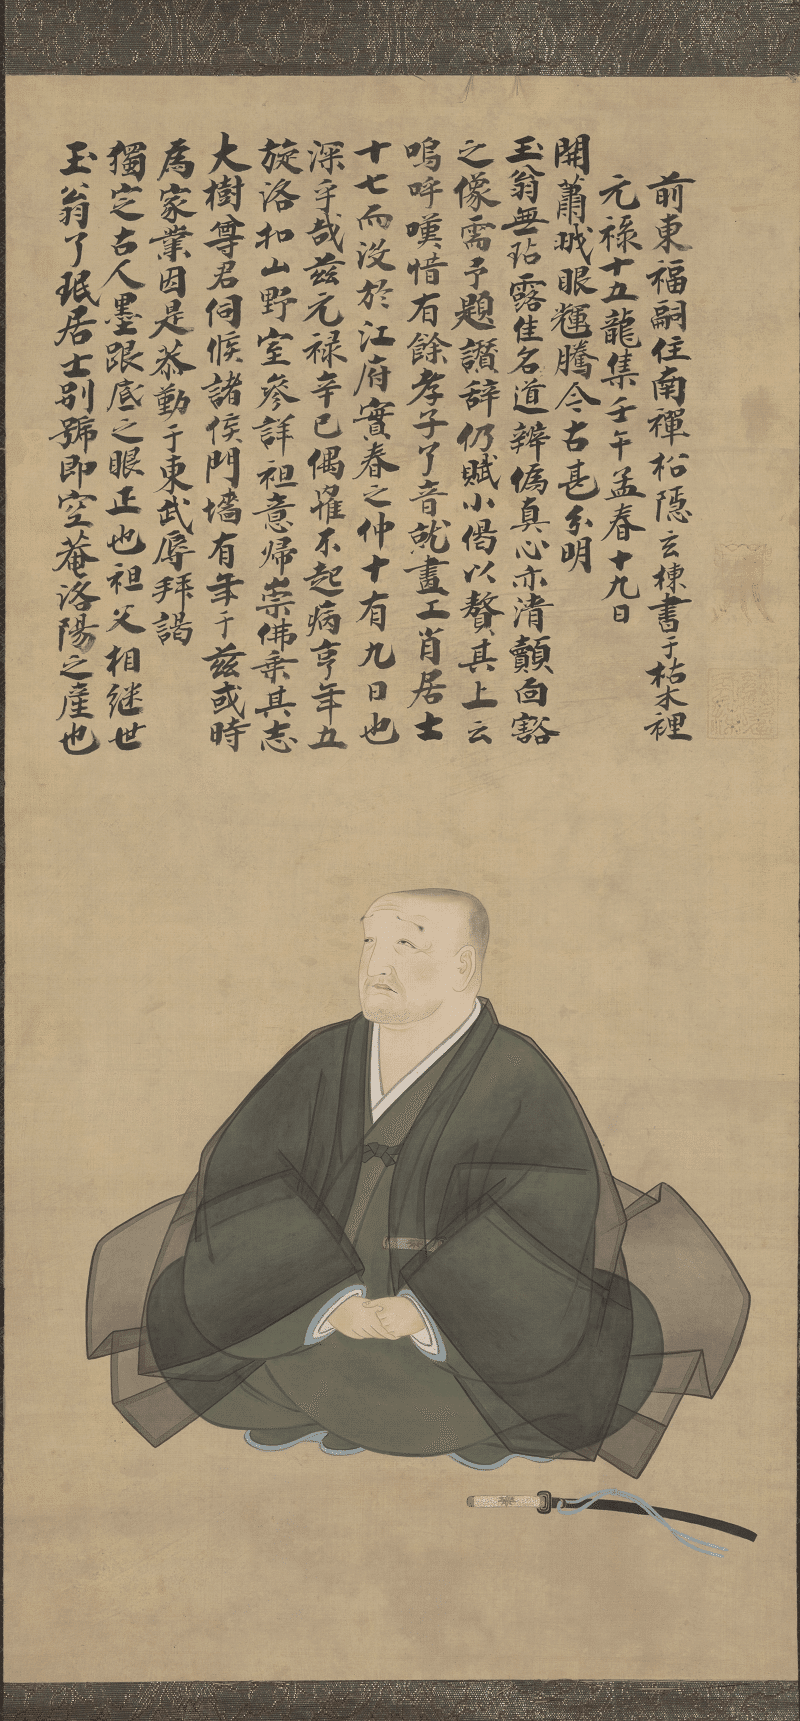 玉翁了珉居士別號即空菴洛陽之産也
獨定古人墨跟底之眼正也祖父相継世
為家業因是恭勤于東武辱拝謁
大樹尊君伺候諸侯門墻有年于茲或時
旋洛扣山野室參詳祖意歸崇佛乗其志
深乎哉茲元禄辛巳偶罹不起病亨年五
十七而没於江府實春之仲十有九日也
嗚呼嘆惜有餘孝子了音就畫工肖居士
之像需予題讃辞仍賦小偈以贅其上云
玉翁無玷露佳名道辨偽真心亦清顛面豁
開蕭眼輝騰今古甚分明
元禄十五龍集壬午孟春十九日
前東福嗣住南禪松隠玄棟書于枯木裡